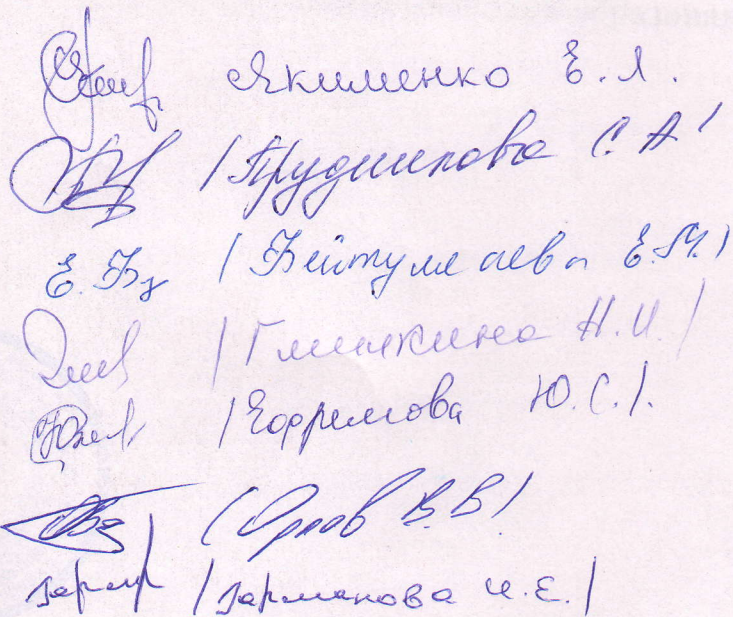 Якименко Е.Л.
/Прудникова С.А/
Е.Бу /Бейтуллаева Е.М./
/Глинкина Н.И./
/Ефремова Ю.С./.
/Орлов В.В/
/Зарманова И.Е./